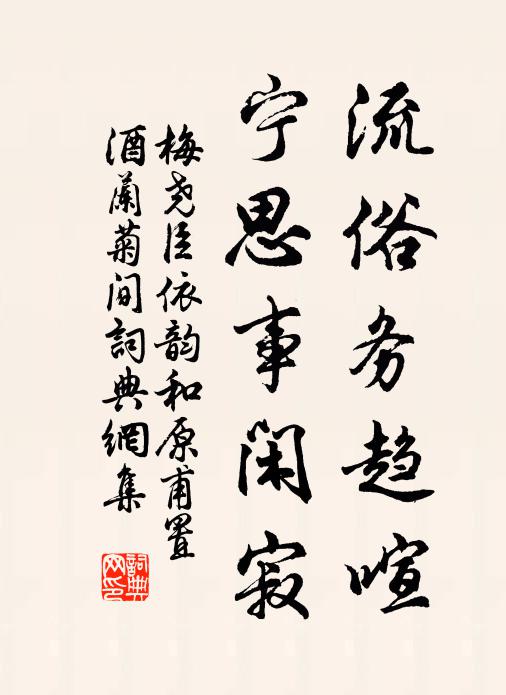 流俗务趋喧
宁思事闲寂
梅尧臣依韵和原甫置
酒兰菊间词典網集
詞典网印